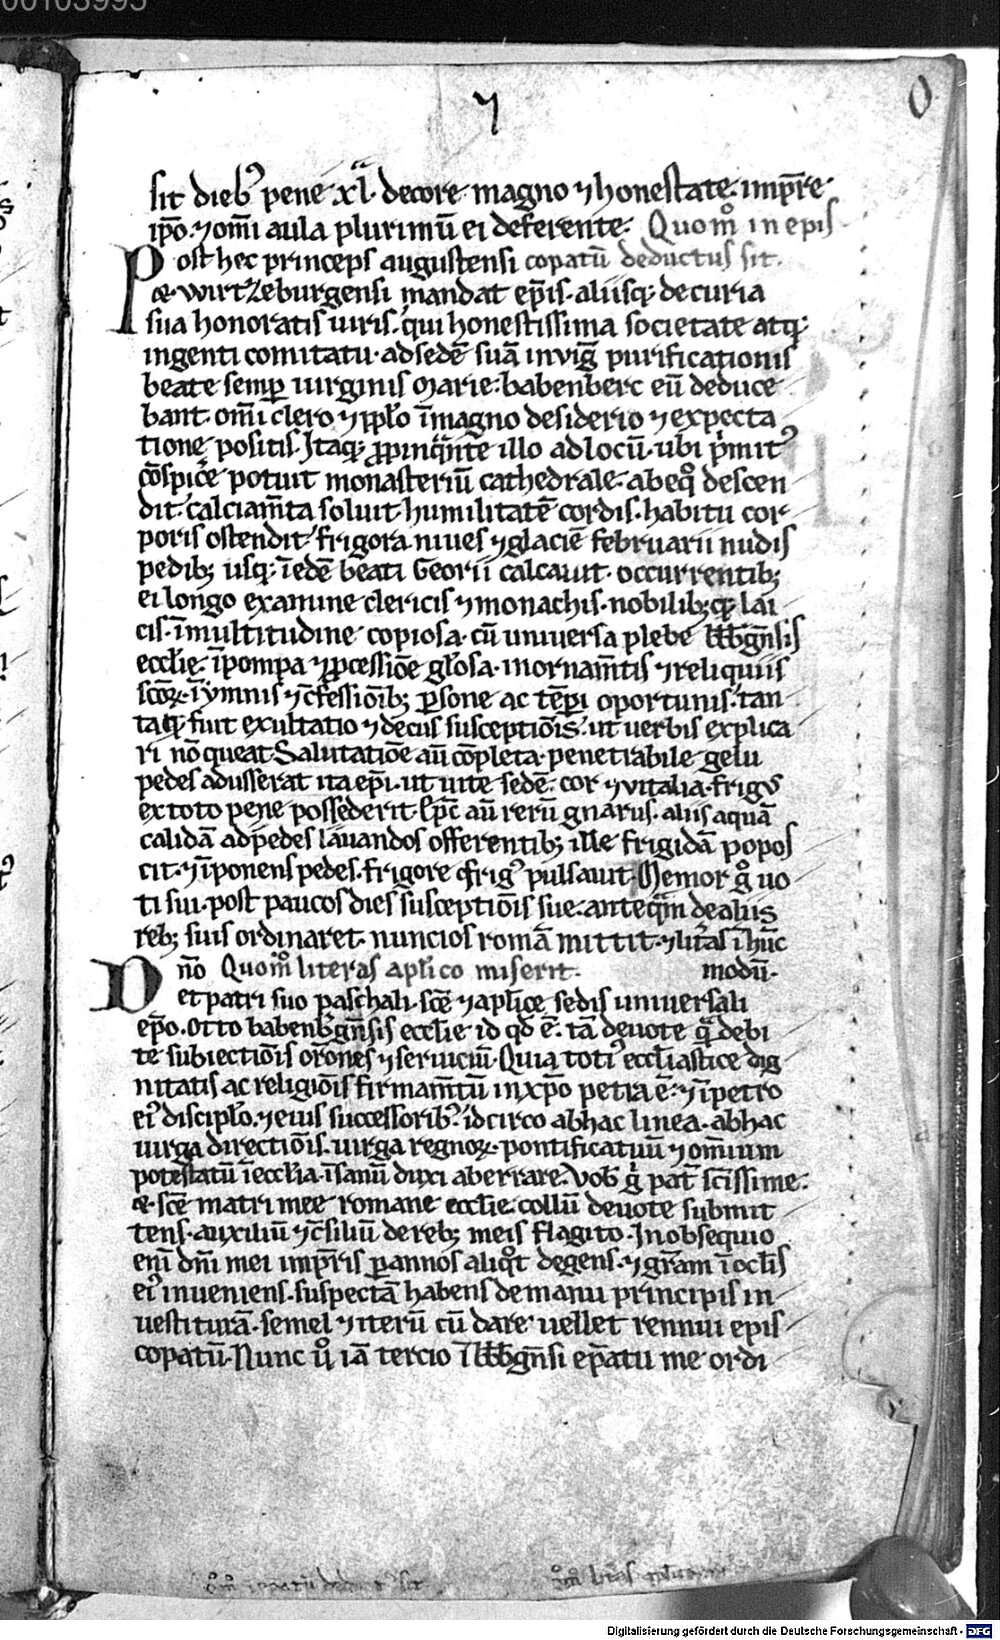 00103993
7
0
sit dieb᷒ pene xl. decore magno ⁊ honestate. imp̄re
ip̄o. ⁊ om̄i aula plurimū ei deferente. Quom̊ in epis
Post hec princeps augustensi copatū deductus sit.
& wirtzeburgensi mandat ep̄is. aliisq; de curia
sua honoratis uiris. qui honestissima societate atq;
ingenti comitatu. ad sedē suā in viḡ purificationis
beate semꝑ uirginis Marie. babenberc eū deduce
bant. om̄i clero ⁊ pp̄lo ī magno desiderio ⁊ expecta
tione positis. Itaq; ꝓpinq̄nte illo ad locū. ubi pͥmit᷒
cōspice᷒ potuit monasteriū cathedrale. ab eqͦ descen
dit. calciam̄ta soluit. humilitatē cordis. habitu cor
poris ostendit. frigora niues ⁊ glaciē februarii nudis
pedib; usq; ī edē beati Georii calcauit. occurrentib;
ei longo examine clericis ⁊ monachis. nobilib; qͣꝫ lai
cis. ī multitudine copiosa. cū uniuersa plebe bbb̄gn̄sis
eccl̄ie. ī pompa ⁊ ꝓcessiōe gl̄osa. in ornam̄tis ⁊ reliquiis
sc̄oꝝ. ī ymnis ⁊ ↄfessiōib; ꝑsone ac tēꝑi oportunis. tan
taq; fuit exultatio ⁊ decus susceptiōis. ut uerbis explica
ri nō queat. Salutatiōe aū cōpleta. penetrabile gelu
pedes adusserat ita ep̄i. ut uite sedē. cor ⁊ vitalia. frig᷒
ex toto pene possederit. Ep̄c aū rerū gnarus. aliis aquā
calidā ad pedes lauandos offerentib; ille frigidā popos
cit. ⁊ īponens pedes. frigore frig᷒ pulsauit. Memor gͦ uo
ti sui. post paucos dies susceptiōis sue. anteqͣm de aliis
reb; suis ordinaret. nuncios romā mittit. ⁊ lr̄as ī hūc
Dn̄o Quom̊ literas apl̄ico miserit. modū.
et patri suo paschali. sc̄e ⁊ apl̄ice sedis uniuersali
ep̄o. Otto babenb᷒gn̄sis eccl̄ie id qd̄ ē. tā deuote qͣ debi
te subiectiōis or̄ones ⁊ seruiciū. Quia toti᷒ eccl̄iastice dig
nitatis ac religiōis firmam̄tū in xp̄o petra ē. ⁊ ī petro
ei᷒ discipl̄o. ⁊ eius successorib᷒. idcirco ab hac linea. ab hac
uirga directiōis. uirga regnoꝝ. pontificatuū ⁊ om̄ium
potestatū ī eccl̄ia. īsanū duxi aberrare. Vob᷒ gͥ pat̄ sc̄issime.
& sc̄e matri mee romane eccl̄ie. collū deuote submit
tens. auxiliū ⁊ ↄsiliū de reb; meis flagito. In obsequio
eni᷒ dn̄i mei imp̄ris ꝑ annos aliqͦt degens. ⁊ gr̄am ī ocl̄is
ei᷒ inueniens. suspectā habens de manu principis in
uestiturā. semel ⁊ iterū cū dare uellet rennui epis
copatū. Nunc uͦ iā tercio ī bbb̄gn̄si ep̄atu me ordi
Digitalisierung gefördert durch die Deutsche Forschungsgemeinschaft - DFG